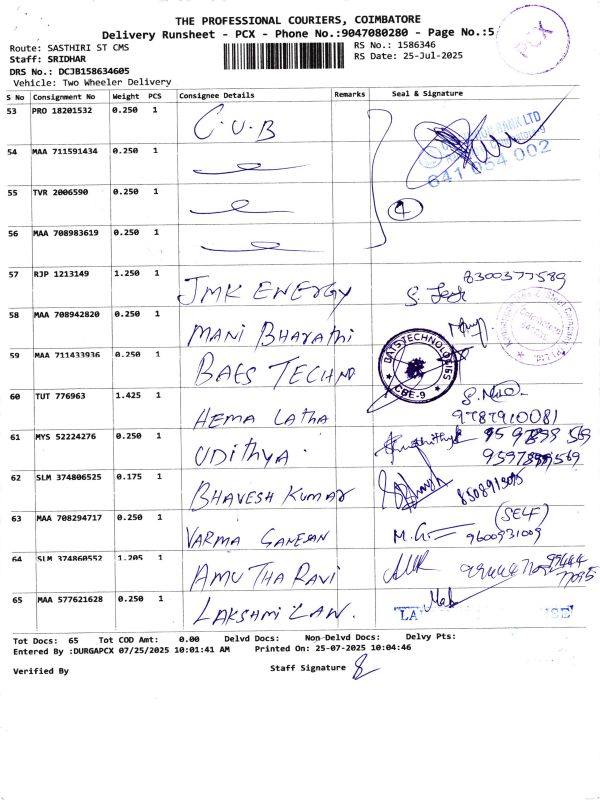 THE PROFESSIONAL COURIERS, COIMBATORE
Delivery Runsheet - PCX - Phone No.:9047080280 - Page No.:5
PCX
Route: SASTHIRI ST CMS
RS No.: 1586346
Staff: SRIDHAR
RS Date: 25-Jul-2025
DRS No.: DCJB158634605
Vehicle: Two Wheeler Delivery
S No Consignment No Weight PCS Consignee Details Remarks Seal & Signature
53 PRO 18201532 0.250 1 C.U.B
BANK LTD
641 054 002
54 MAA 711591434 0.250 1
55 TVR 2006590 0.250 1 4
56 MAA 708983619 0.250 1
57 RJP 1213149 1.250 1 JMK ENERGY 8300377589
58 MAA 708942820 0.250 1 MANI BHARATHI
59 MAA 711433936 0.250 1 BAES TECHNO
BATS TECHNOLOGIES
CBE-9
60 TUT 776963 1.425 1 HEMA LATHA 9787910081
61 MYS 52224276 0.250 1 UDithya
62 SLM 374806525 0.175 1 BHAVESH KUMAR
63 MAA 708294717 0.250 1 VARMA GANESAN M.G (SELF) 9600931009
64 SLM 374860552 1.205 1 AMUTHA RAVI
65 MAA 577621628 0.250 1 LAKSHMI LAW.
Tot Docs: 65 Tot COD Amt: 0.00 Delvd Docs: Non-Delvd Docs: Delvy Pts:
Entered By :DURGAPCX 07/25/2025 10:01:41 AM Printed On: 25-07-2025 10:04:46
Verified By
Staff Signature